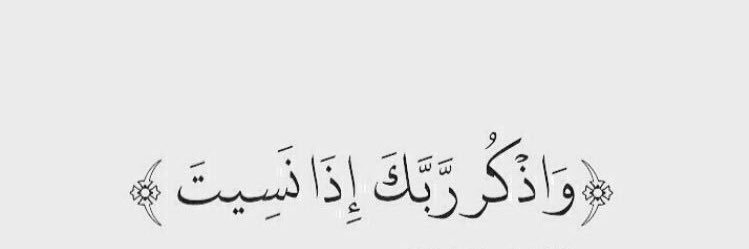 ﴿وَاذْكُر رَّبَّكَ إِذَا نَسِيتَ﴾